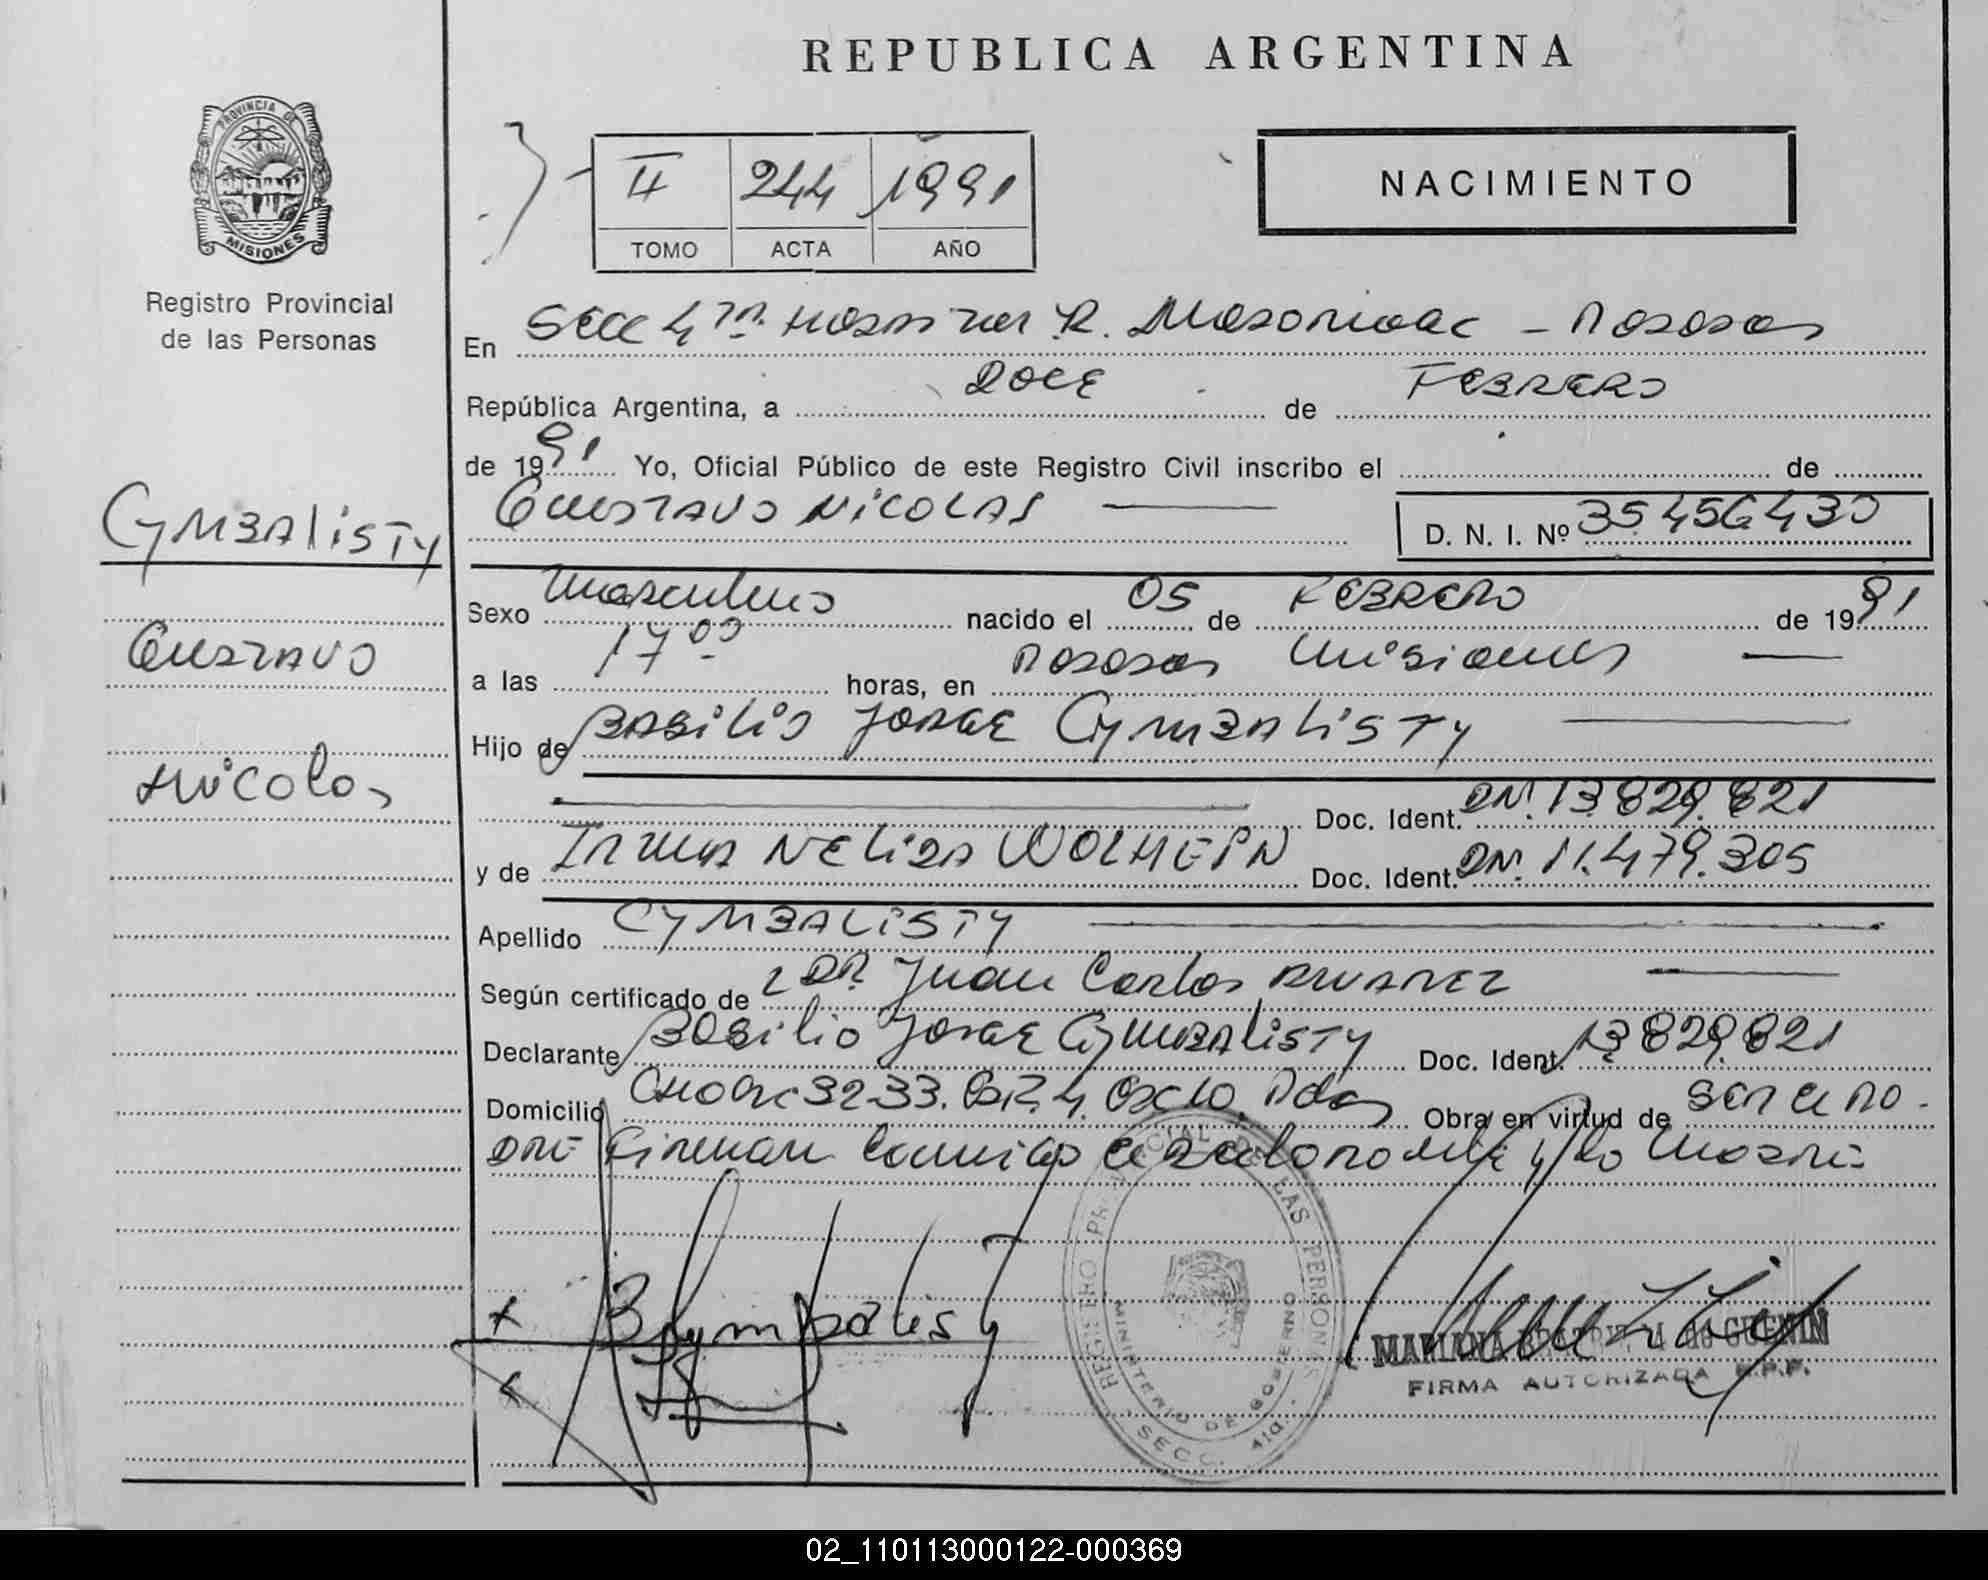 REPUBLICA ARGENTINA
PROVINCIA DE
MISIONES
Registro Provincial
de las Personas
II 244 1991
TOMO ACTA AÑO
NACIMIENTO
En Secc 4ta Hospital R. Madariaga - Posadas
República Argentina, a DOCE de FEBRERO
de 1991 Yo, Oficial Público de este Registro Civil inscribo el de
GUSTAVO NICOLAS D. N. I. Nº 35.456.430
Cymbalisty
Gustavo
Nicolas
Sexo masculino nacido el 05 de FEBRERO de 1991
a las 17 00 horas, en Posadas Misiones
Hijo de BASILIO JORGE CYMBALISTY
Doc. Ident. DNI. 13.829.821
y de IRMA NELIDA Doc. Ident. DNI. 11.479.305
Apellido CYMBALISTY
Según certificado de DR. Juan Carlos ALVAREZ
Declarante Basilio Jorge CYMBALISTY Doc. Ident. 13.829.821
Domicilio 32-33. 4. Pdas Obra en virtud de ser el PA-
DRE Firman conmigo el declarante y la madre
REGISTRO PROVINCIAL DE LAS PERSONAS
MINISTERIO DE GOBIERNO
SECC. 4ta.
MARIANA de GUENIN
FIRMA AUTORIZADA R.P.P.
02_110113000122-000369